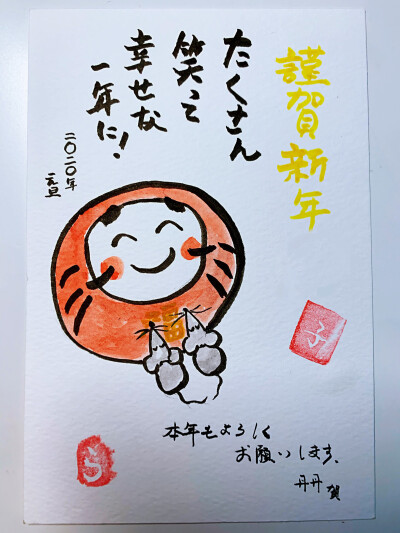 謹賀新年
たくさん
笑って
幸せな
一年に！
二〇二〇年
元旦
福
子
本年もよろしく
お願いします、
丹丹
賀